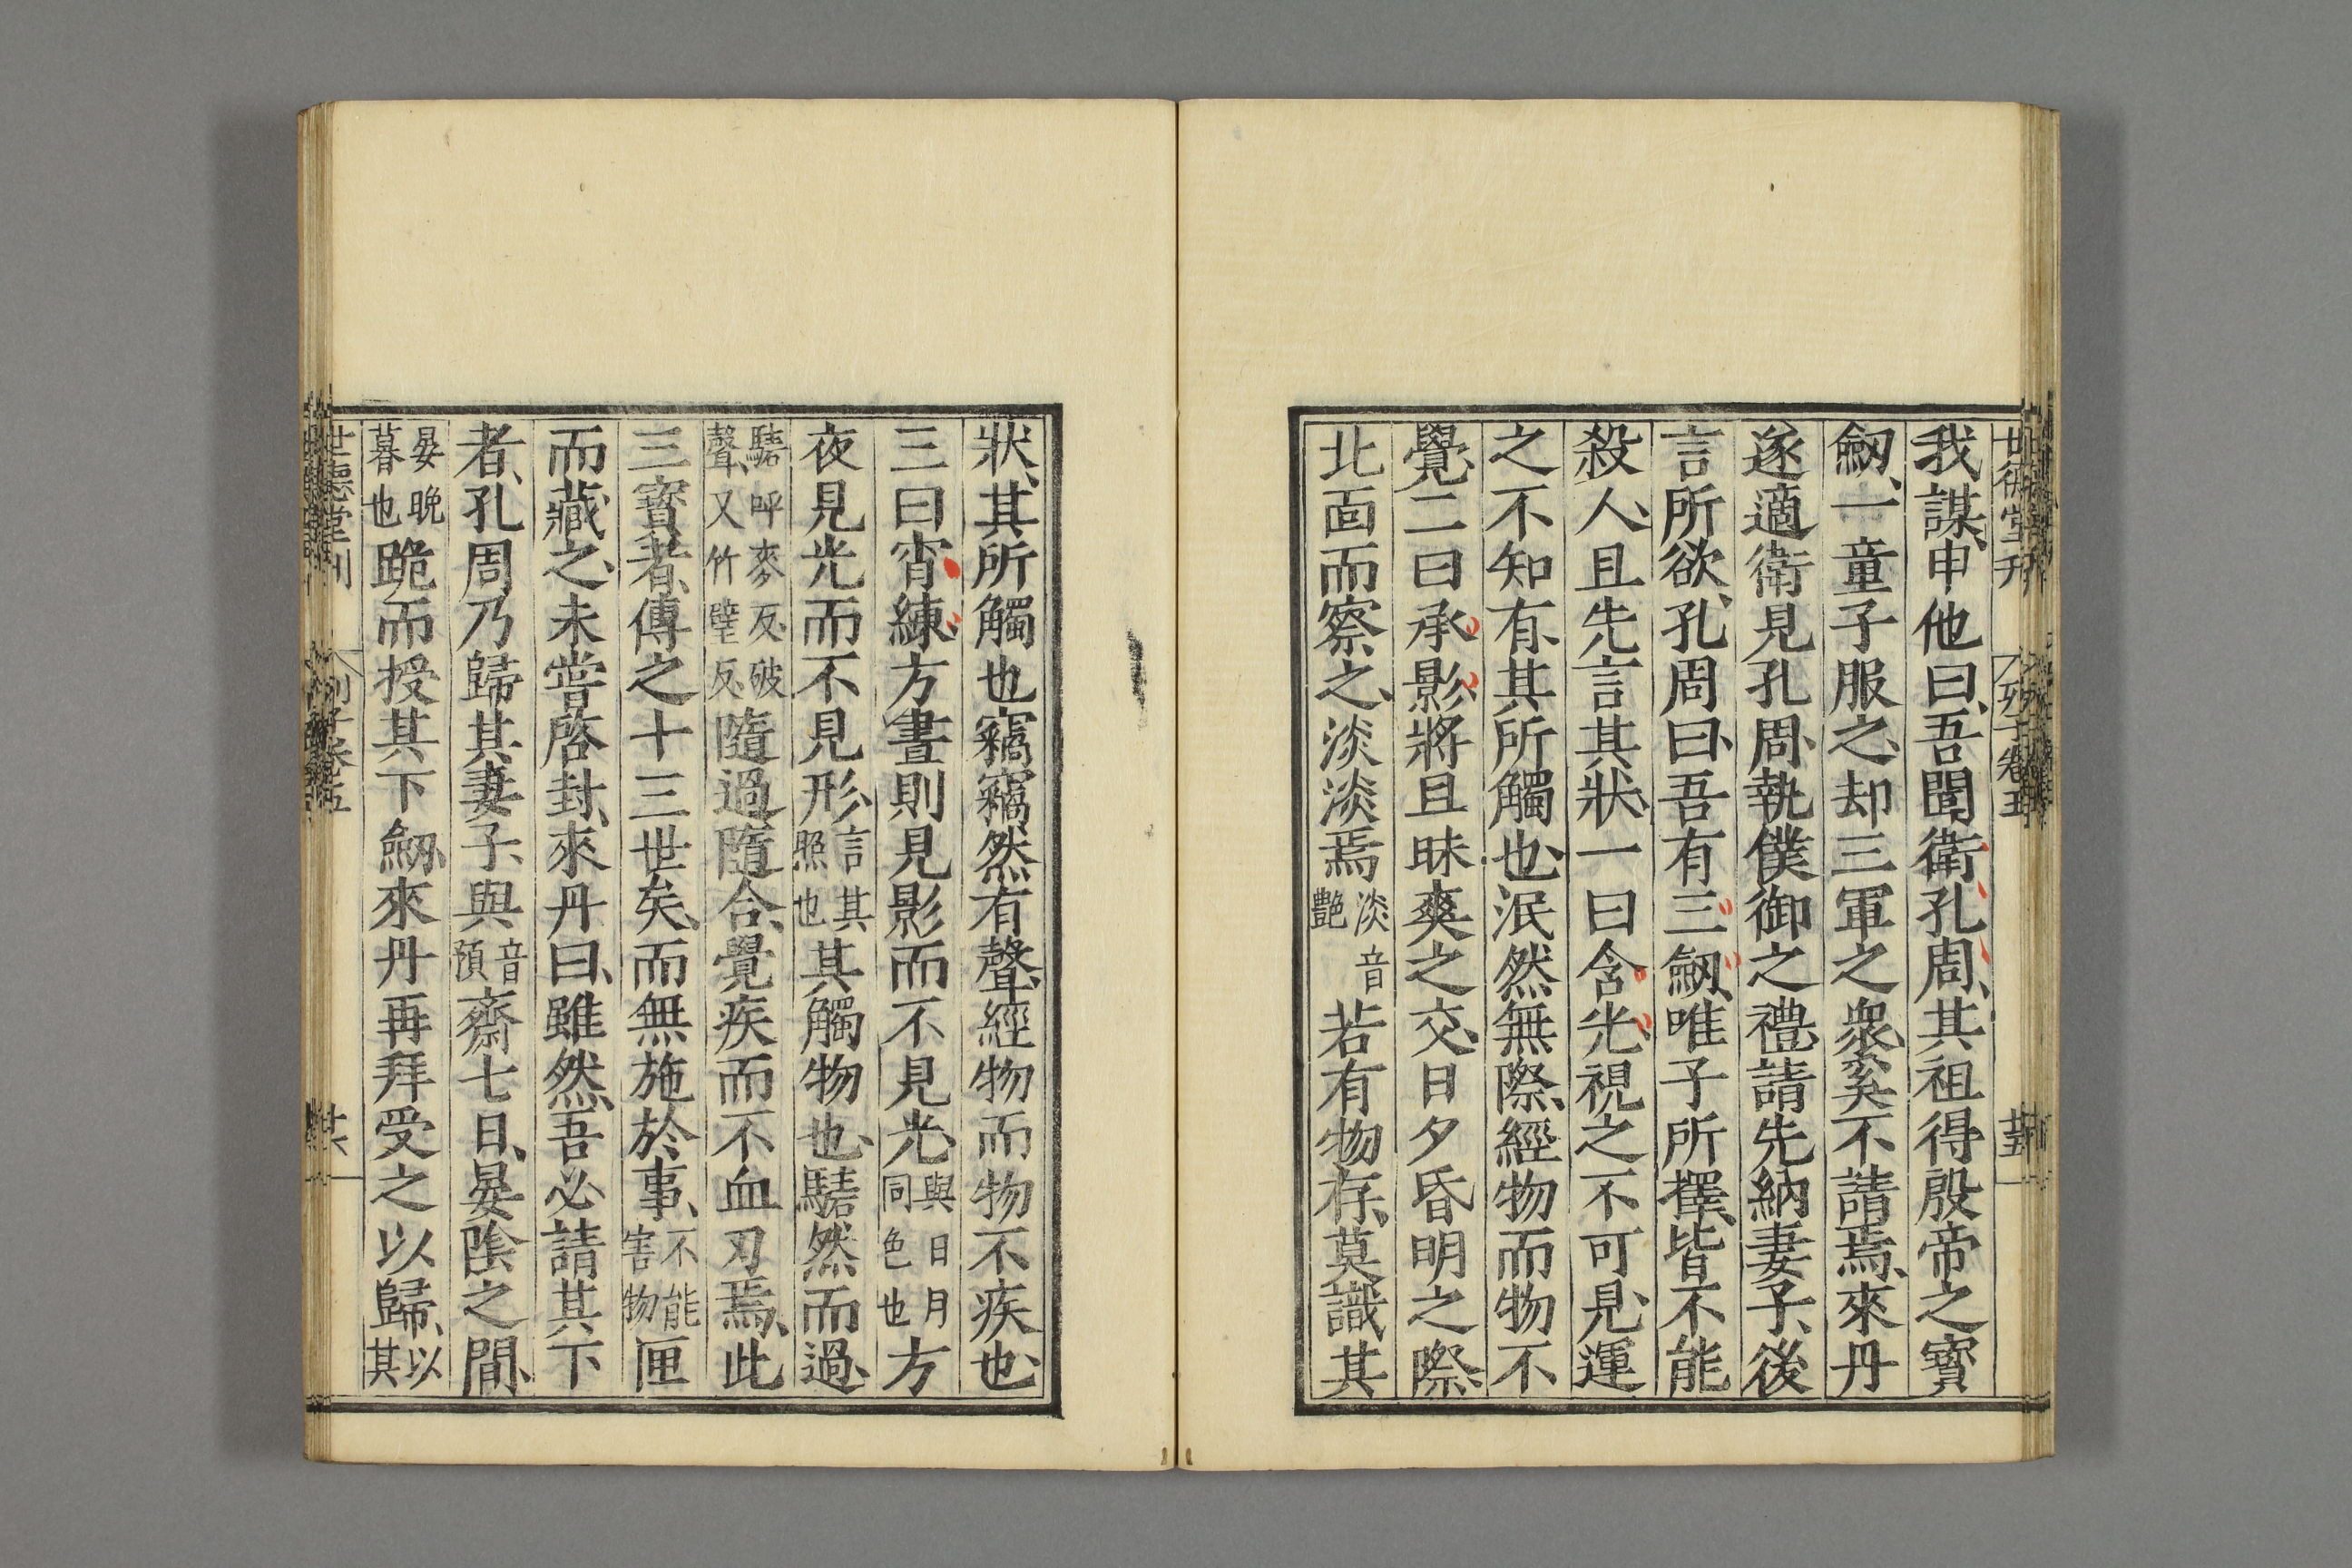 世德堂刊 列子卷五 廿五
我謀申他曰、吾聞衛孔周、其祖得殷帝之寶
劒、一童子服之、却三軍之衆、奚不請焉、來丹
遂適衛見孔周、執僕御之禮、請先納妻子、後
言所欲、孔周曰、吾有三劒、唯子所擇、皆不能
殺人、且先言其狀、一曰含光、視之不可見、運
之不知有、其所觸也、泯然無際、經物而物不
覺、二曰承影、將旦昧爽之交、日夕昏明之際、
北面而察之、淡淡焉淡音艷若有物存、莫識其
狀、其所觸也竊竊然有聲、經物而物不疾也、
三曰宵練、方晝則見影而不見光、與日月同色也方
夜見光而不見形、言其照也其觸物也、騞然而過、
騞呼麥反、破聲、又竹壁反、隨過隨合、覺疾而不血刃焉、此
三寶者、傳之十三世矣、而無施於事、不能害物匣
而藏之、未嘗啓封、來丹曰、雖然、吾必請其下
者、孔周乃歸其妻子、與音預齋七日、晏陰之間、
晏晚暮也跪而授其下劒、來丹再拜受之以歸、以其
世德堂刊 列子卷五 廿六